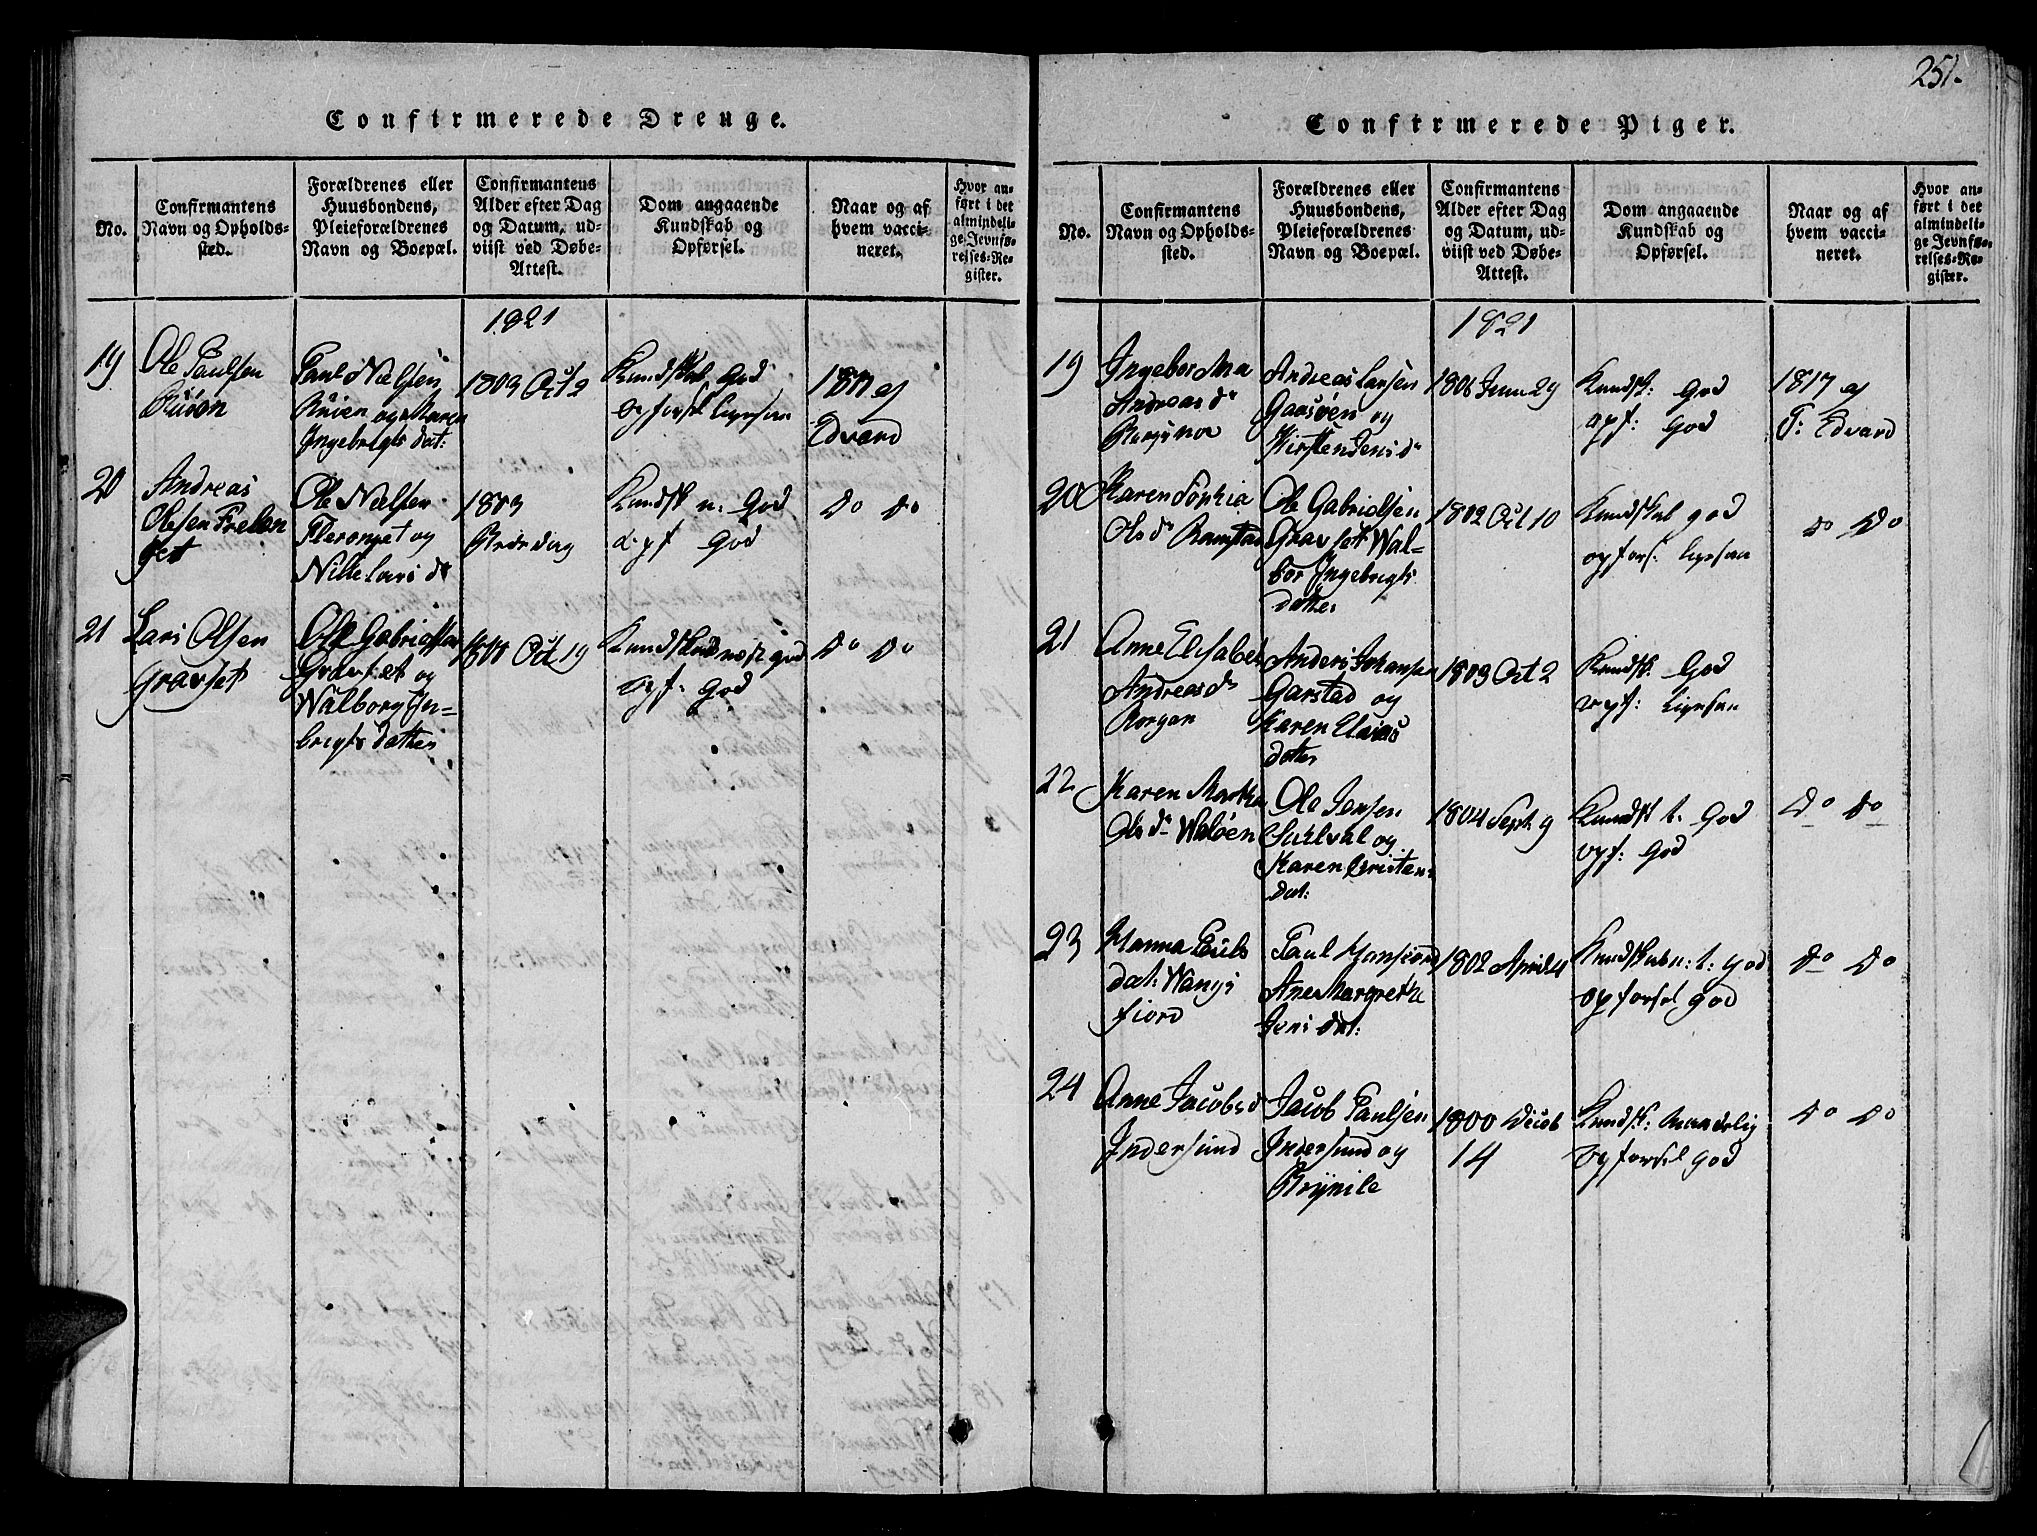 251.
Confirmerede Drenge.
No.
Confirmantens
Navn og Opholds-
sted.
Forældrenes eller
Huusbondens,
Pleieforældrenes
Navn og Boepæl.
Confirmantens
Alder efter Dag
og Datum, ud-
viist ved Døbe-
Attest.
Dom angaaende
Kundskab og
Opførsel.
Naar og af
hvem vacci-
neret.
Hvor an-
ført i det
almindeli-
ge Jevnfø-
relses-Re-
gister.
1821
19
Ole Paulsen
Paul Nielsen
og Maren
Ingebrigts dat:
1803 Oct 2
Kundskab God
opforsel
1817 af
Edvard
20
Andreas
Olsen
Ole Nielsen
og
1803
Kundsk n: God
opf God
do do
21
Lars Olsen
Gravset
Ole Gabrielsen
Gravset og
Walborg In-
brigts datter
Oct 19
Kundskab næst god
opf: God
do do
Confirmerede Piger.
No.
Confirmantens
Navn og Opholds-
sted.
Forældrenes eller
Huusbondens,
Pleieforældrenes
Navn og Boepæl.
Confirmantens
Alder efter Dag
og Datum, ud-
viist ved Døbe-
Attest.
Dom angaaende
Kundskab og
Opførsel.
Naar og af
hvem vacci-
neret.
Hvor an-
ført i det
almindeli-
ge Jevnfø-
relses-Re-
gister.
1821
19
Ingebor Ma
Andreas dr
Andreas Larsen
Gaasøen og
Kirsten Jens dr
Juni 29
Kundsk: God
opf: God
1817 af
F: Edvard
20
Karen Sophia
Ols dr Ramstad
Ole Gabrielsen
Gravset Wal-
bor Ingebrigts
datter
1802 Oct 10
Kundskab god
opfors:
do do
21
Anne Elisabet
Andreas dr
Anders Johansen
Garstad og
Karen Elaias
datter
1803 Oct 2
Kundsk. God
opf:
22
Karen Martha
Ols dr Waløen
Ole Jensen
og
Karen Cristens
dat:
1804 Sept 9
Kundsk t. God
opf: God
do do
23
Hanna Pouls
dat: Wangs
fiord
Paul
Ane Margrethe
Jens dat:
1802 April 4
Kundskab n: t: god
opforsel god
do do
24
Anne Jacobs d
Indersund
Jacob Paulsen
Indersund og
1800 Decb
14
Kundsk: maadelig
opforsel god
do do